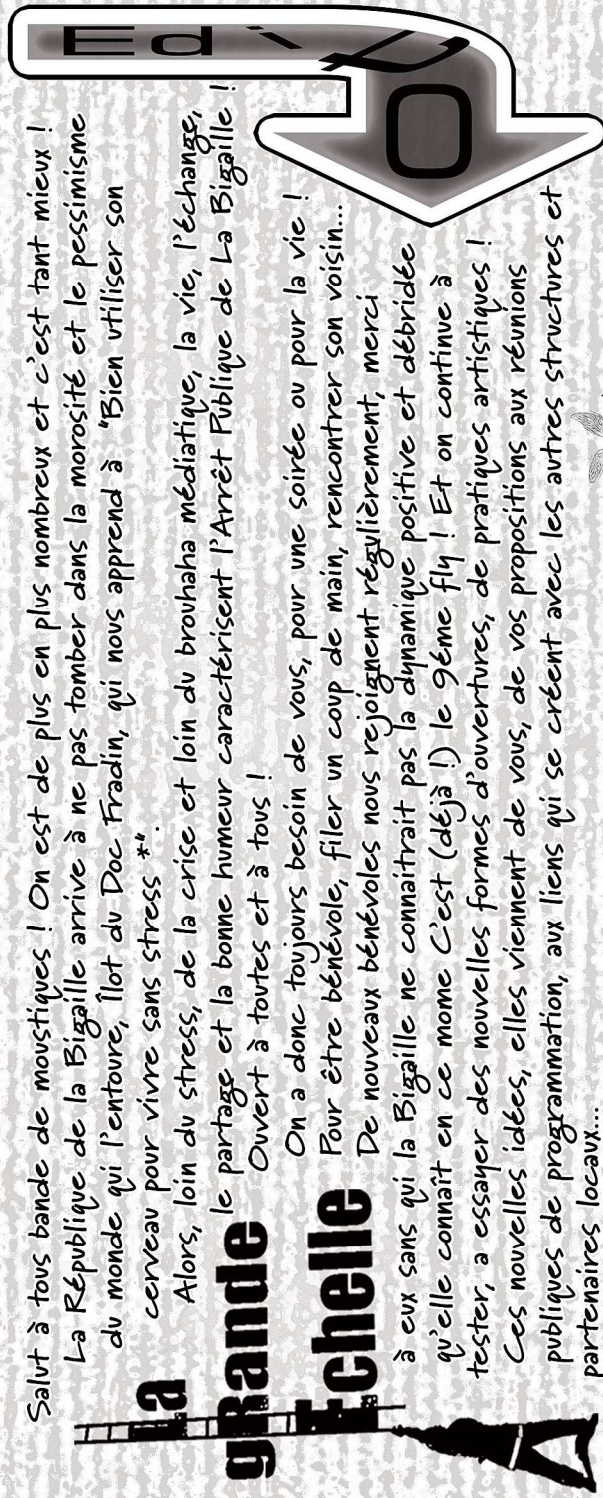 EdiTO
Salut à tous bande de moustiques ! On est de plus en plus nombreux et c'est tant mieux !
La République de la Bigaille arrive à ne pas tomber dans la morosité et le pessimisme
du monde qui l'entoure, îlot du Doc Fradin, qui nous apprend à "Bien utiliser son
cerveau pour vivre sans stress *".
Alors, loin du stress, de la crise et loin du brouhaha médiatique, la vie, l'échange,
le partage et la bonne humeur caractérisent l'Arrêt Publique de La Bigaille !
Ouvert à toutes et à tous !
La
gRande
Echelle
On a donc toujours besoin de vous, pour une soirée ou pour la vie !
Pour être bénévole, filer un coup de main, rencontrer son voisin...
De nouveaux bénévoles nous rejoignent régulièrement, merci
à eux sans qui la Bigaille ne connaitrait pas la dynamique positive et débridée
qu'elle connaît en ce mome C'est (déjà !) le 9éme fly ! Et on continue à
tester, a essayer des nouvelles formes d'ouvertures, de pratiques artistiques !
Ces nouvelles idées, elles viennent de vous, de vos propositions aux réunions
publiques de programmation, aux liens qui se créent avec les autres structures et
partenaires locaux...